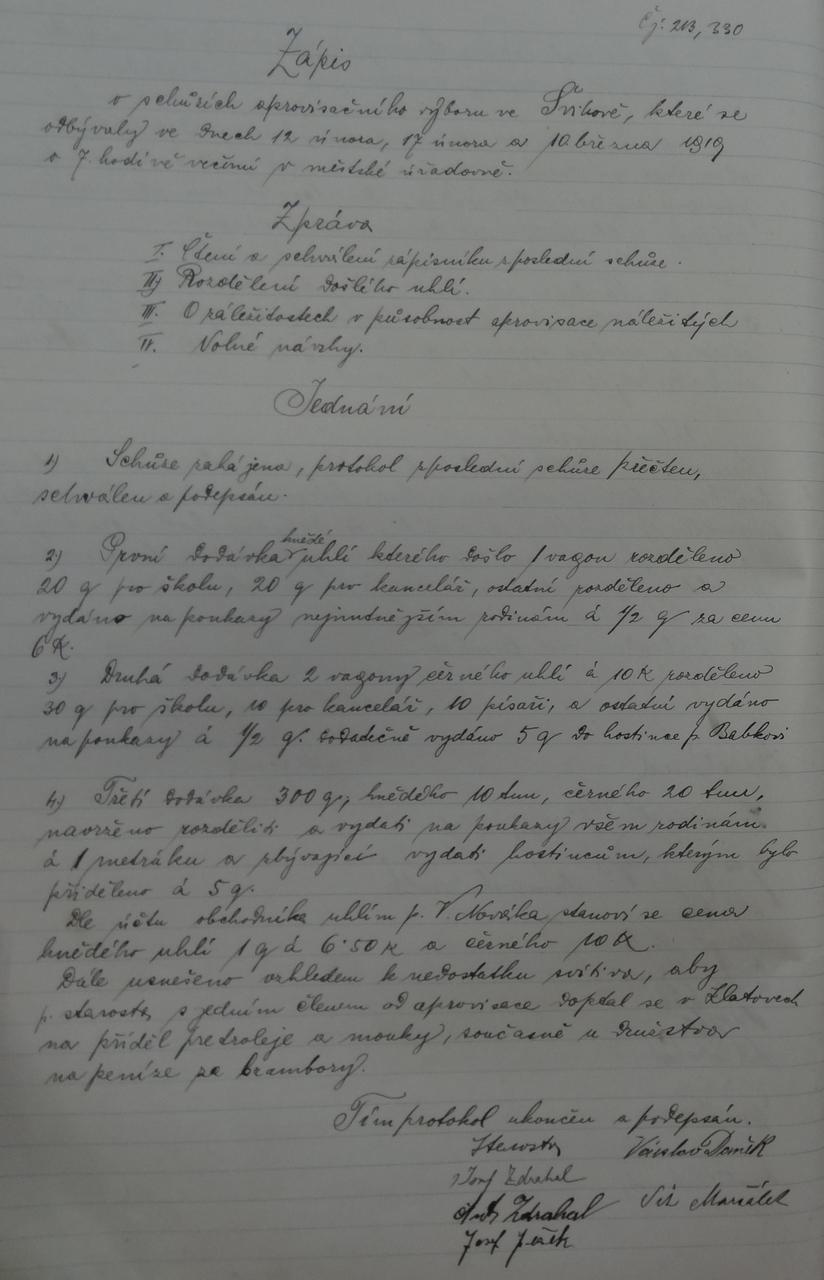 Čj: 213, 330
Zápis
o schůzích aprovisačního výboru ve Švihově, které se
odbývaly ve dnech 12 února, 17 února a 10 března 1919
o 7. hodině večerní v městské úřadovně.
Zpráva
I. Čtení a schválení zápisníku z poslední schůze.
II) Rozdělení došlého uhlí.
III. O záležitostech v působnost aprovisace náležitých
IV. Volné návrhy.
Jednání
1) Schůze zahájena, protokol z poslední schůze přečten,
schválen a podepsán.
hnědé
2) První dodávka uhlí kterého došlo 1 vagon rozděleno
20 q pro školu, 20 q pro kancelář, ostatní rozděleno a
vydáno na poukazy nejnutnějším rodinám á 1/2 q za cenu
6 K.
3) Druhá dodávka 2 vagony černého uhlí á 10 K rozděleno
30 q pro školu, 10 pro kancelář, 10 písaři, a ostatní vydáno
na poukazy á 1/2 q. dodatečně vydáno 5 q do hostince p. Babkovi
4) Třetí dodávka 300 q, hnědého 10 tun, černého 20 tun,
navrženo rozděliti a vydati na poukazy všem rodinám
á 1 metráku a zbývající vydati hostincům, kterým bylo
přiděleno á 5 q.
Dle účtu obchodníka uhlím p. V. Nováka stanoví se cena
hnědého uhlí 1 q á 6·50 K a černého 10 K.
Dále usnešeno vzhledem k nedostatku svítiva, aby
p. starosta s jedním členem od aprovisace doptal se v Klatovech
na příděl petroleje a mouky, současně u družstva
na peníze za brambory.
Tím protokol ukončen a podepsán.
Starosta Václav
Josef Zdrahal
Zdrahal Vít Maršálek
Josef